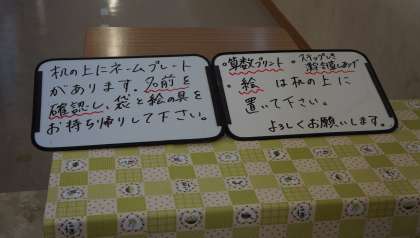 机の上にネームプレート
があります。名前を
確認し、袋と絵の具を
お持ち帰りして下さい。
・算数プリント ・スキップして
・絵 は机の上に
置いて下さい。
よろしくお願いします。